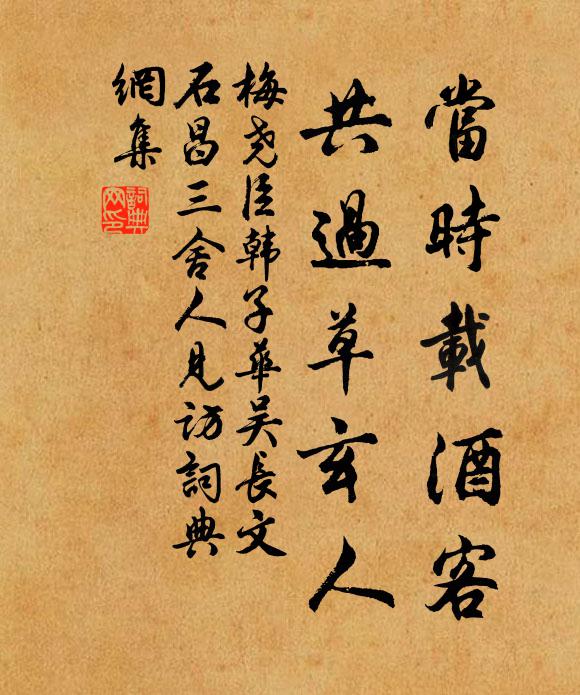 當時載酒客
共過草玄人
梅尧臣韩子華吴長文
石昌三舍人見访詞典
網集
詞典
网印